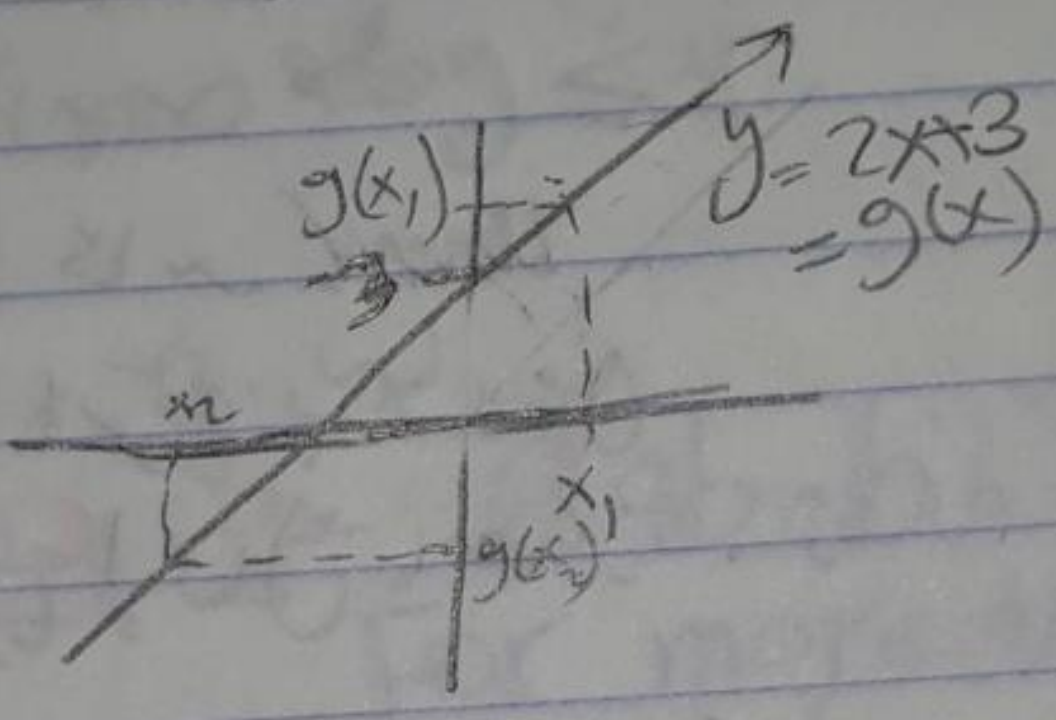 g(x₁)
y = 2x+3
= g(x)
3
x₂
x₁
g(x₂)